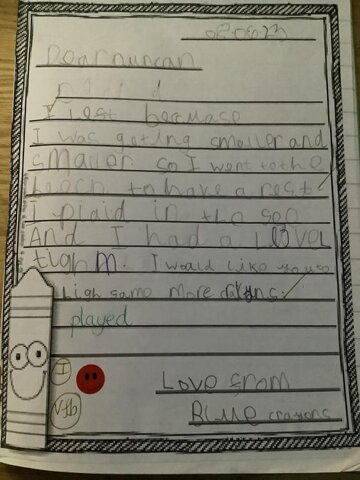 Dear Duncan
I left because
I was getting smaller and
smaller so I went to the
beach to have a rest
I plaid in the son
And I had a lovel
tigh m. I would like you to
some more
played
I
Vfb
Love from
Blue crayons